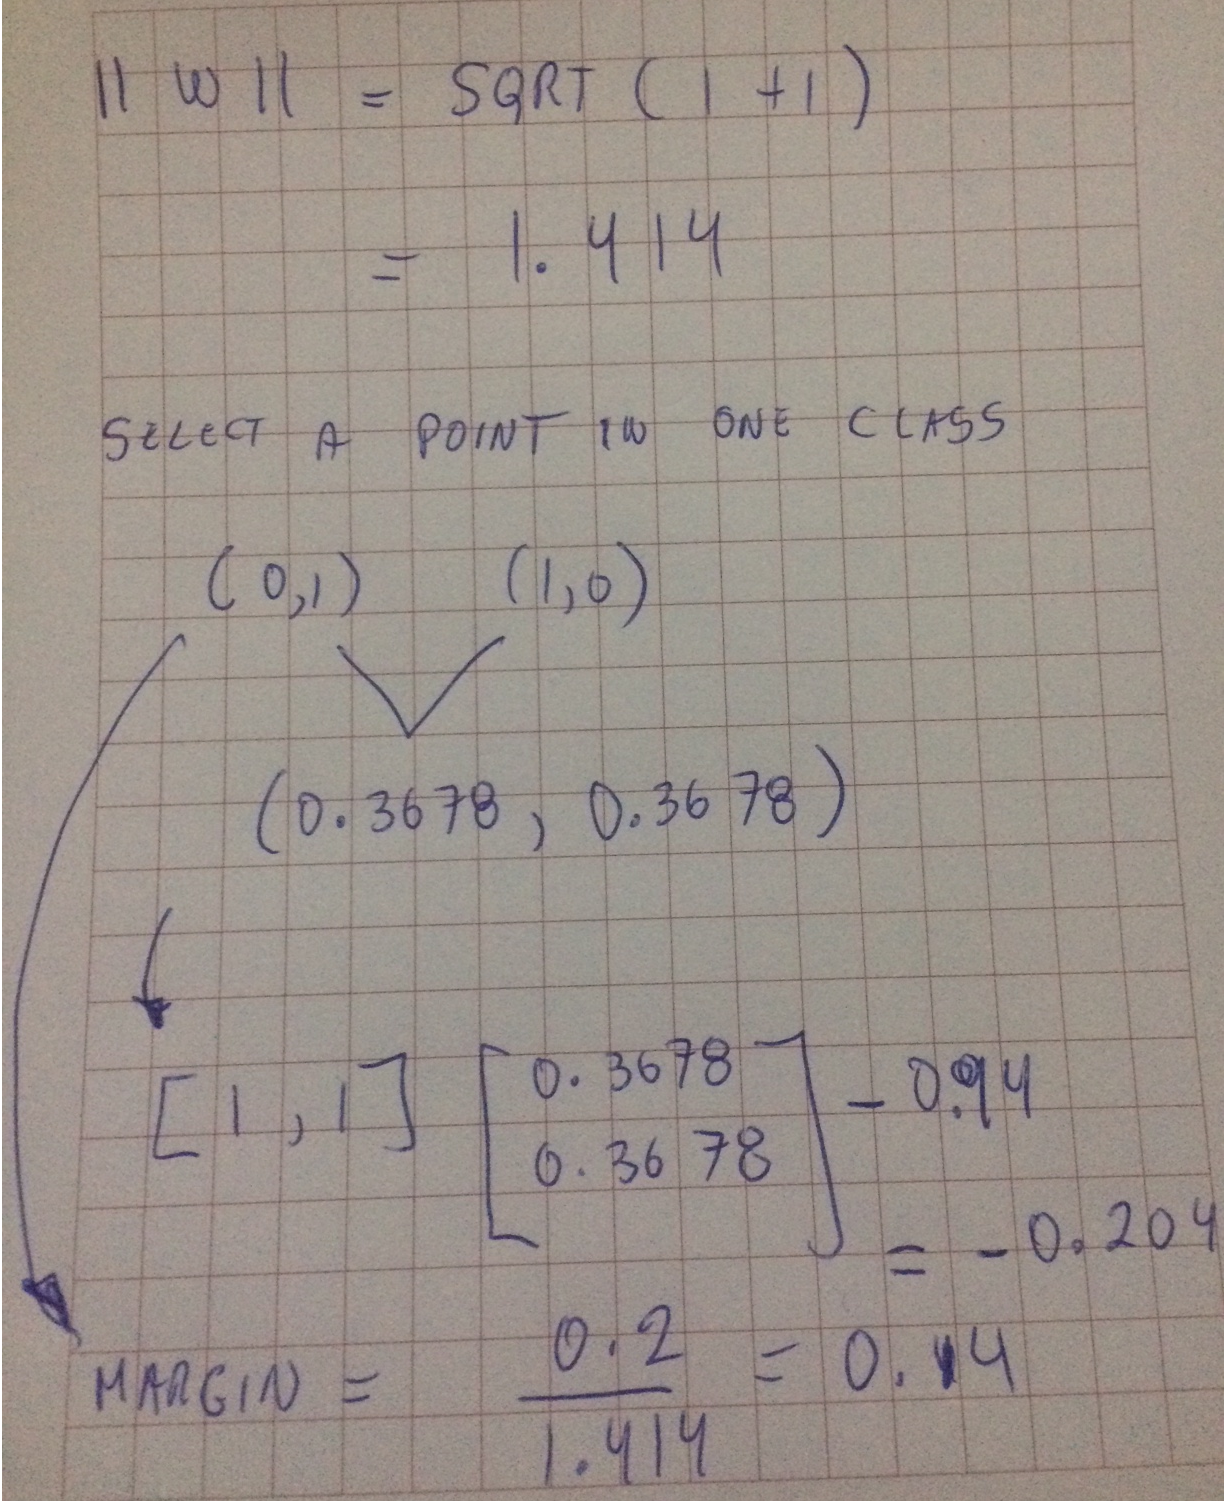 || W || = SQRT ( 1 + 1 )
= 1.414
SELECT A POINT IN ONE CLASS
(0,1) (1,0)
(0.3678, 0.3678)
[1, 1] [0.3678 - 0.94
0.3678]
= - 0.204
MARGIN = 0.2 = 0.14
1.414